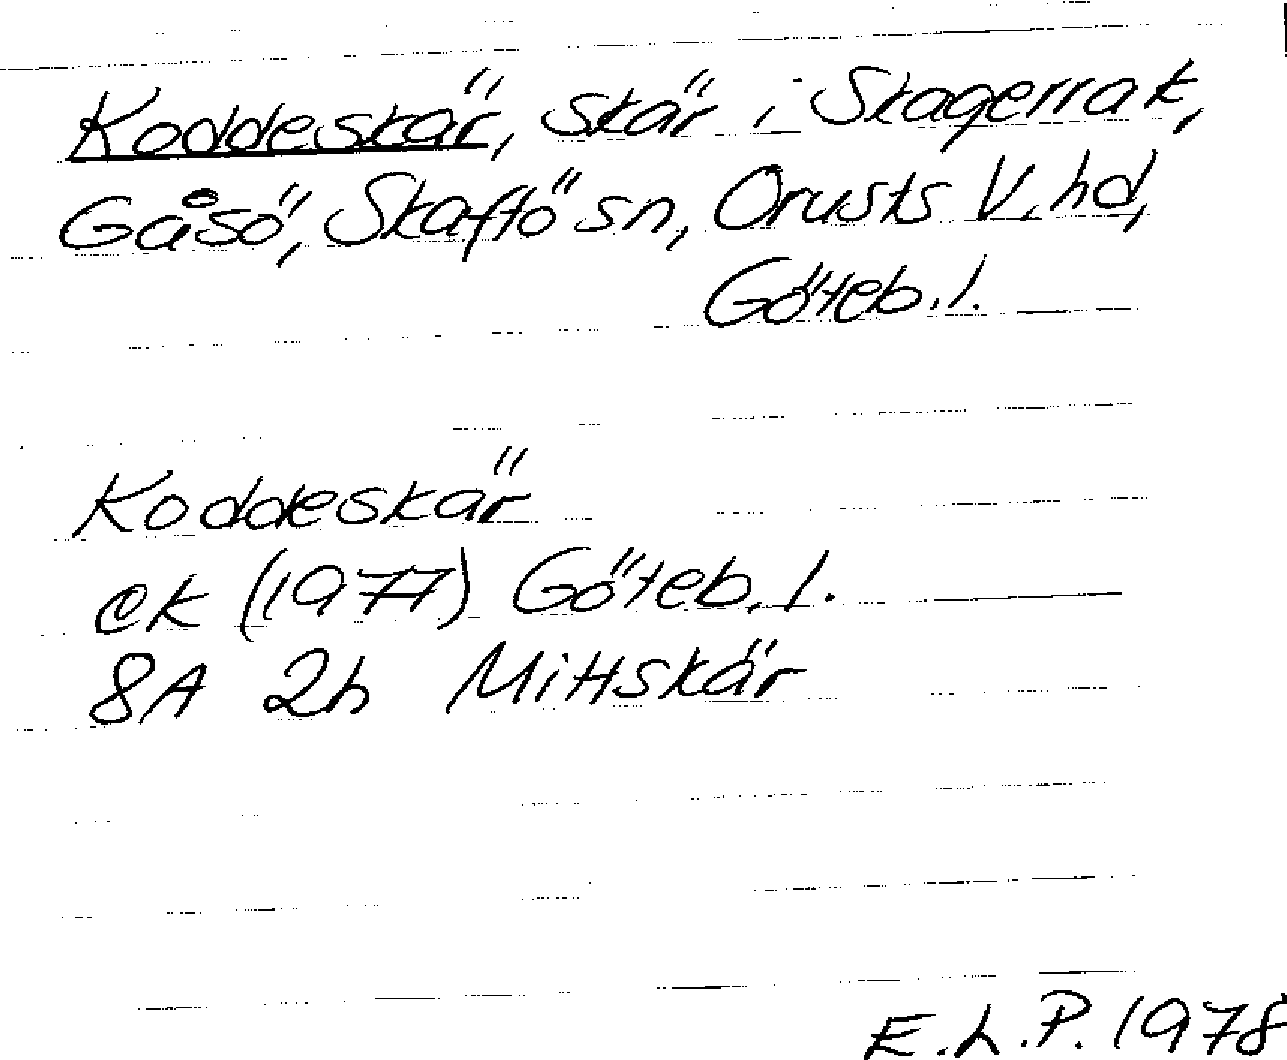 Koddeskär, skär i Skagerrak,
Gåsö, Skaftö sn, Orusts V. hd,
Göteb. l.
Koddeskär
ek (1977) Göteb. l.
8A 2h Mittskär
E.L.P. 1978